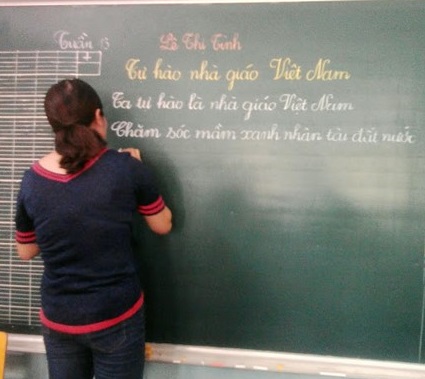 Tuần 13
Lê Thị Tình
Tự hào nhà giáo Việt Nam
Ta tự hào là nhà giáo Việt Nam
Chăm sóc mầm xanh nhân tài đất nước